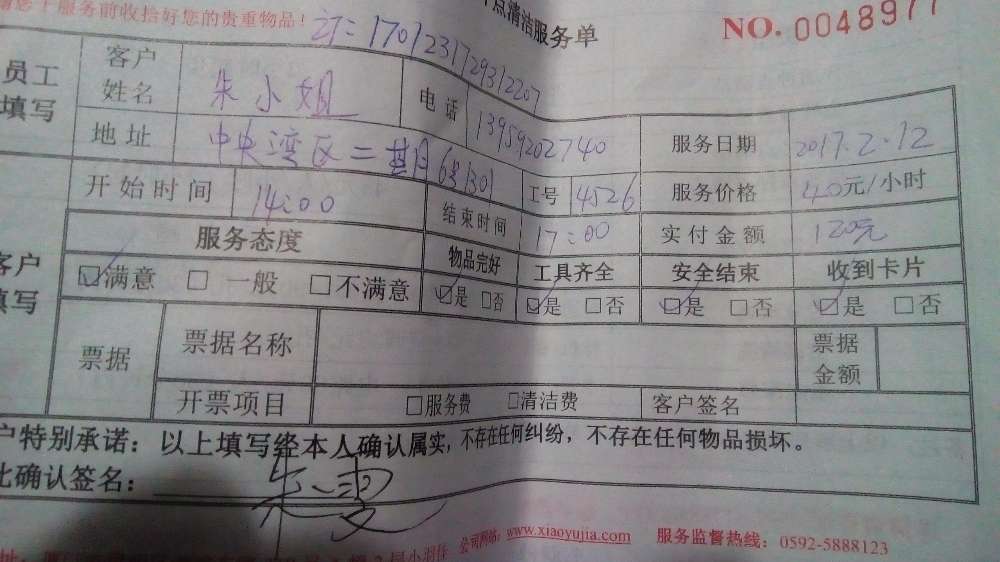 请您于服务前收拾好您的贵重物品！ 点清洁服务单 NO. 0048977
订：1701231729312207
员工填写 客户姓名 朱小姐 电话 13959202740 服务日期 2017.2.12
地址 中央湾区二期6#1301 工号 4526 服务价格 40元/小时
开始时间 14:00 结束时间 17:00 实付金额 120元
客户填写 服务态度 物品完好 工具齐全 安全结束 收到卡片
☑满意 □一般 □不满意 ☑是 □否 ☑是 □否 ☑是 □否 ☑是 □否
票据 票据名称 票据金额
开票项目 □服务费 □清洁费 客户签名
户特别承诺：以上填写经本人确认属实，不存在任何纠纷，不存在任何物品损坏。
此确认签名：朱
公司网站：www.xiaoyujia.com 服务监督热线：0592-5888123